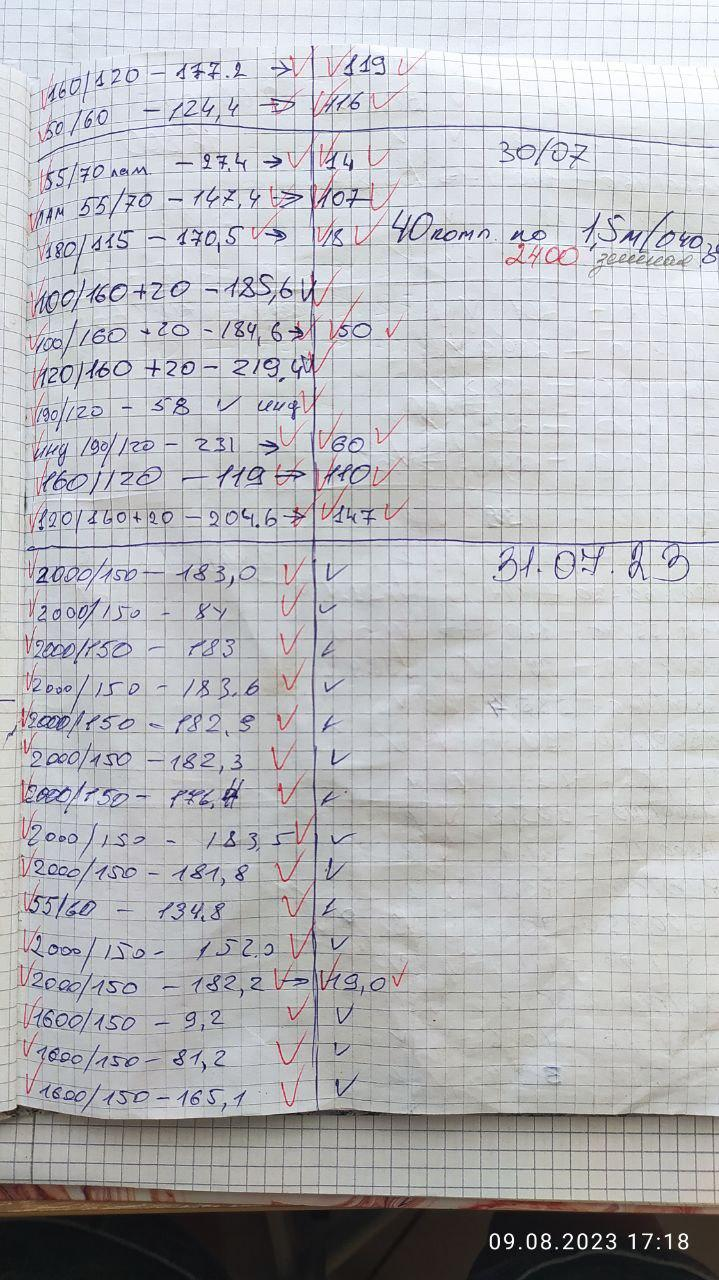 160/120 - 177.2 → 119
50/60 - 124,4 → 116
30/07
55/70 лам. - 27.4 → 14
лам 55/70 - 147,4 → 107
180/115 - 170,5 → 18
40 комп. по 1,5м/040
2400 зеленая
100/160+20 - 185,6
100/160+20 - 184,6 → 50
120/160+20 - 219,4
190/120 - 58 ✓ инд
инд 190/120 - 231 → 60
160/120 - 119 → 110
120/160+20 - 204.6 → 147
31.07.23
2000/150 - 183,0 ✓
2000/150 - 84 ✓
2000/150 - 183 ✓
2000/150 - 183.6 ✓
2000/150 - 182,9 ✓
2000/150 - 182,3 ✓
2000/150 - 176, ✓
2000/150 - 183,5 ✓
2000/150 - 181,8 ✓
55/60 - 134.8 ✓
2000/150 - 152.0 ✓
2000/150 - 182,2 → 19,0
1600/150 - 9,2 ✓
1600/150 - 81,2 ✓
1600/150 - 165,1 ✓
09.08.2023 17:18